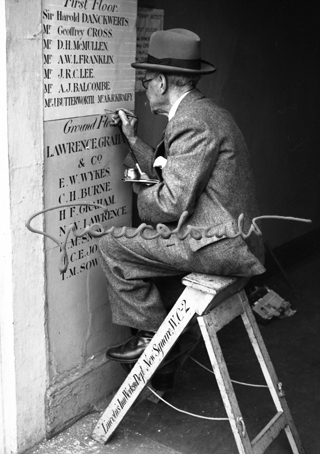 First Floor.
Sir Harold DANCKWERTS
Mr Geoffrey CROSS
Mr D.H.McMULLEN
Mr A.W.L.FRANKLIN
Mr J.R.C.LEE.
Mr A.J.BALCOMBE
Mr J.H.BUTTERWORTH. Mr A.K.R.KIRALFY
Ground Flo
LAWRENCE.GRAH
& CO.
E.W.WYKES
C.H.BURNE.
H.F.GRAHAM
N. LAWRENCE.
T.M.SOW
Lincoln's Inn Works Dept. New Square. W.C.2